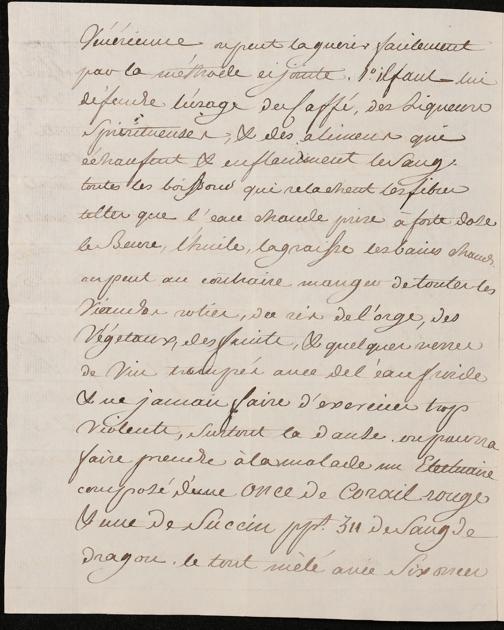 Vénérienne on peut la guerir facilement
par la méthode cijointe. 1° il faut lui
défendre l'usage du Caffé, des Liqueurs
Spiritueuses, & des alimens qui
échauffent & enflamment le sang.
toutes les boissons qui relachent les fibres
telles que l'eau chaude prise à forte dose
le Beure, l'huile, la graisse les bains chauds
on peut au contraire manger de toutes les
Viandes roties, du ris de l'orge, des
Végetaux, des fruits, & quelques verres
de Vin trempés avec de l'eau froide
& ne jamais faire d'exercices trop
violents, surtout la danse. on pourra
faire prendre à la malade un Electuaire
composé d'une once de Corail rouge
& une de Succin ppt. 3ii de Sang de
dragon. le tout mêlé avec Six onces